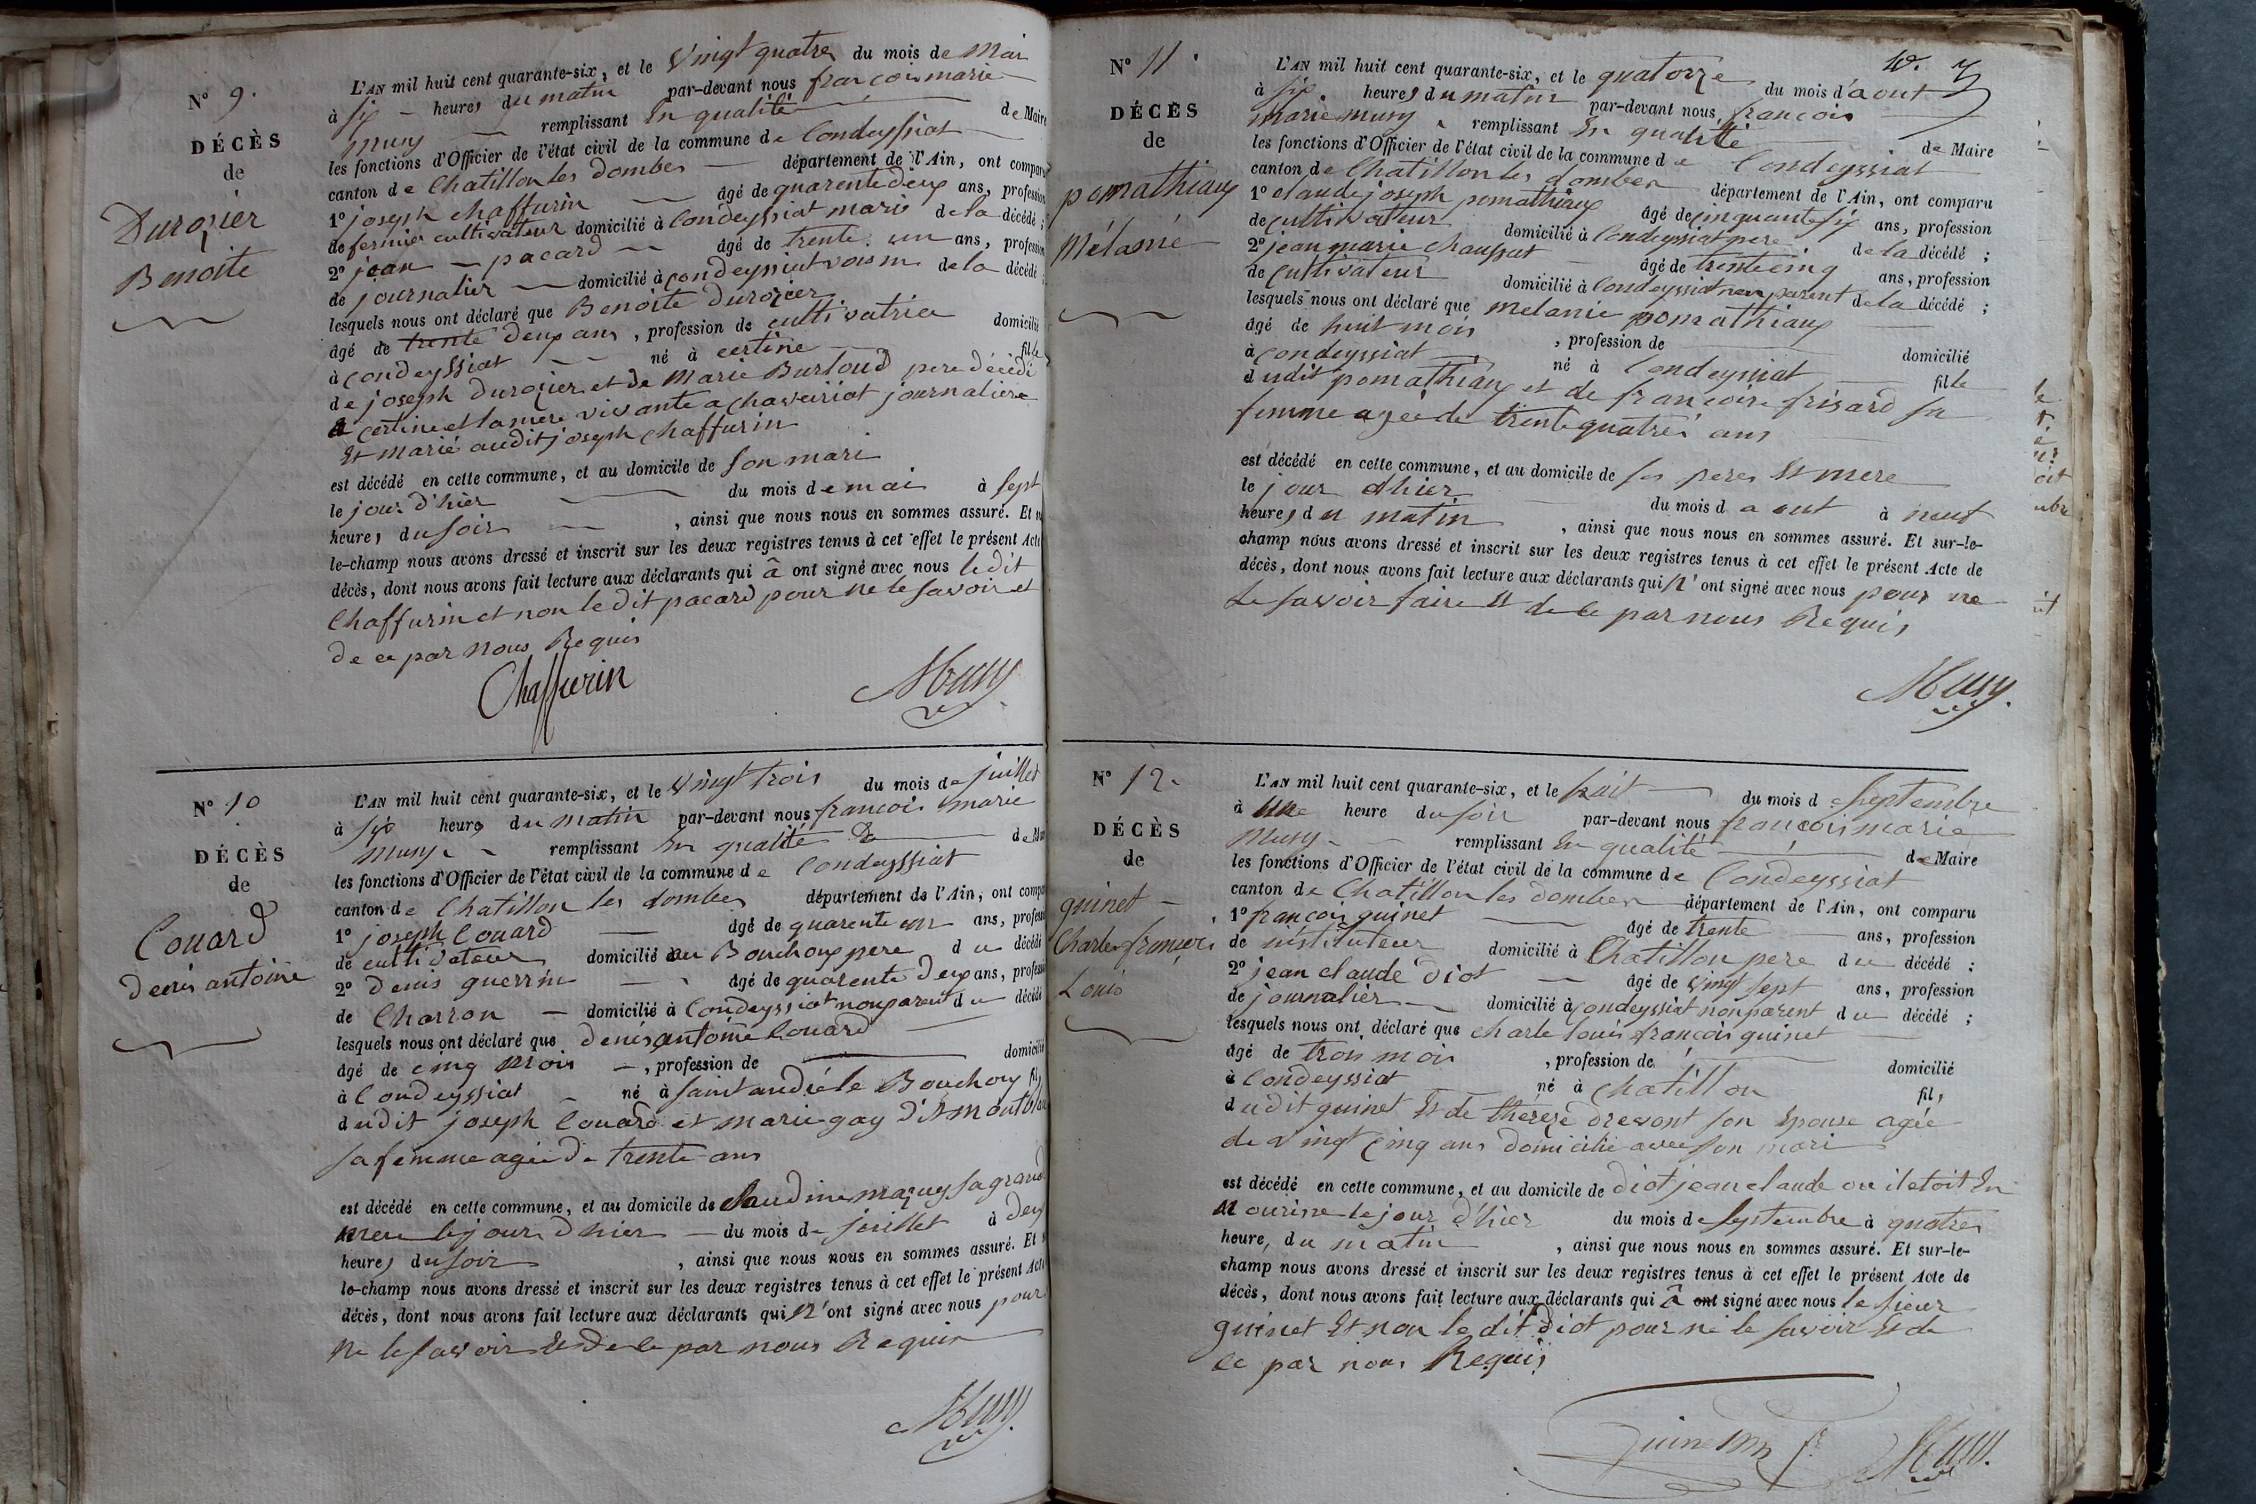 N° 9.
DÉCÈS
de
Durozier
Benoite
L'AN mil huit cent quarante-six, et le vingt quatre du mois de Mai
à six heures du matin par-devant nous françois marie
musy remplissant En qualité de Maire
les fonctions d'Officier de l'état civil de la commune de Condeyssiat
canton de Chatillon les dombes département de l'Ain, ont comparu
1° joseph chaffurin âgé de quarente deux ans, profession
de fermier cultivateur domicilié à Condeyssiat marie de la décédé ;
2° jean pacard âgé de trente un ans, profession
de journalier domicilié à condeyssiat voisin de la décédé ;
lesquels nous ont déclaré que Benoite durozier
âgé de trente deux ans, profession de cultivatrice domicilié
à condeyssiat né à certine fille
de joseph durozier et de Marie Burtoud pere décédé
a certine et la mere vivante a chaveiriat journaliere
Et marié audit joseph chaffurin
est décédé en cette commune, et au domicile de son mari
le jour d'hier du mois de mai à sept
heures du soir, ainsi que nous nous en sommes assuré. Et
le-champ nous avons dressé et inscrit sur les deux registres tenus à cet effet le présent Acte
décès, dont nous avons fait lecture aux déclarants qui â ont signé avec nous ledit
Chaffurin et non le dit pacard pour ne le savoir et
de ce par nous Requis
Chaffurin Musy
N° 10
DÉCÈS
de
Couard
denis antoine
L'AN mil huit cent quarante-six, et le vingt trois du mois de juillet
à six heures du matin par-devant nous françois marie
musy remplissant En qualité de de Maire
les fonctions d'Officier de l'état civil de la commune de Condeyssiat
canton de Chatillon les dombes département de l'Ain, ont comparu
1° joseph Couard âgé de quarente un ans, profession
de cultivateur domicilié au Bouchoux pere du décédé
2° denis guerrin âgé de quarente deux ans, profession
de Charron domicilié à Condeyssiat non parent du décédé
lesquels nous ont déclaré que denis antoine Couard
âgé de cinq mois, profession de domicilié
à Condeyssiat né à saint andré le Bouchoux fil
dudit joseph Couard et marie gay dit mont blanc
sa femme agée de trente ans
est décédé en cette commune, et au domicile de Claudine mazuy sa grand
mere le jour d'hier du mois de juillet à deux
heures du soir, ainsi que nous nous en sommes assuré. Et
le-champ nous avons dressé et inscrit sur les deux registres tenus à cet effet le présent Acte
décès, dont nous avons fait lecture aux déclarants qui n'ont signé avec nous pour
ne le savoir Et de ce par nous Requis
Musy
N° 11.
DÉCÈS
de
pomathiaux
Mélanie
L'AN mil huit cent quarante-six, et le quatorze du mois d'aout
à six heures du matin par-devant nous françois
marie musy remplissant En qualité de Maire
les fonctions d'Officier de l'état civil de la commune de Condeyssiat
canton de Chatillon les dombes département de l'Ain, ont comparu
1° claude joseph pomathiaux âgé de cinquante six ans, profession
de cultivateur domicilié à Condeyssiat pere de la décédé ;
2° jean marie chaussat âgé de trente cinq ans, profession
de cultivateur domicilié à Condeyssiat non parent de la décédé ;
lesquels nous ont déclaré que melanie pomathiaux
âgé de huit mois, profession de domicilié
à condeyssiat né à Condeyssiat fille
dudit pomathiaux et de françoise frisard sa
femme agée de trente quatre ans
est décédé en cette commune, et au domicile de ses peres Et mere
le jour d'hier du mois d aout à neuf
heures du matin, ainsi que nous nous en sommes assuré. Et sur-le-
champ nous avons dressé et inscrit sur les deux registres tenus à cet effet le présent Acte de
décès, dont nous avons fait lecture aux déclarants qui n'ont signé avec nous pour ne
le savoir faire Et de ce par nous Requis
Musy
N° 12.
DÉCÈS
de
quinet
Charle françois
Louis
L'AN mil huit cent quarante-six, et le huit du mois de Septembre
à une heure du soir par-devant nous françois marie
Musy remplissant En qualité de Maire
les fonctions d'Officier de l'état civil de la commune de Condeyssiat
canton de Chatillon les dombes département de l'Ain, ont comparu
1° françois quinet âgé de trente ans, profession
de instituteur domicilié à Chatillon pere du décédé ;
2° jean claude diot âgé de vingt sept ans, profession
de journalier domicilié à condeyssiat non parent du décédé ;
lesquels nous ont déclaré que charle louis françois quinet
âgé de trois mois, profession de domicilié
à Condeyssiat né à chatillon fils
dudit quinet Et de thérèse drevont son Epouse agée
de vingt cinq ans domicilié avec son mari
est décédé en cette commune, et au domicile de diot jean claude ou il etoit En
Nourise le jour d'hier du mois de Septembre à quatre
heures du matin, ainsi que nous nous en sommes assuré. Et sur-le-
champ nous avons dressé et inscrit sur les deux registres tenus à cet effet le présent Acte de
décès, dont nous avons fait lecture aux déclarants qui â ont signé avec nous le sieur
quinet Et non le dit Diot pour ne le savoir Et de
ce par nous Requis
Musy